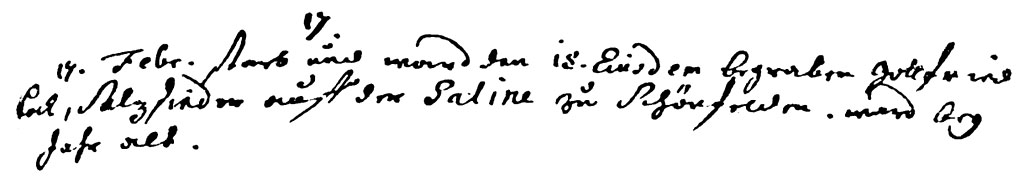 17.
17. Febr. starb und ward den 18. Eiusdem begraben Gottfried
, Saltzsieder auff der Saline zu Schönfelden. ward bey
Jahr alt.